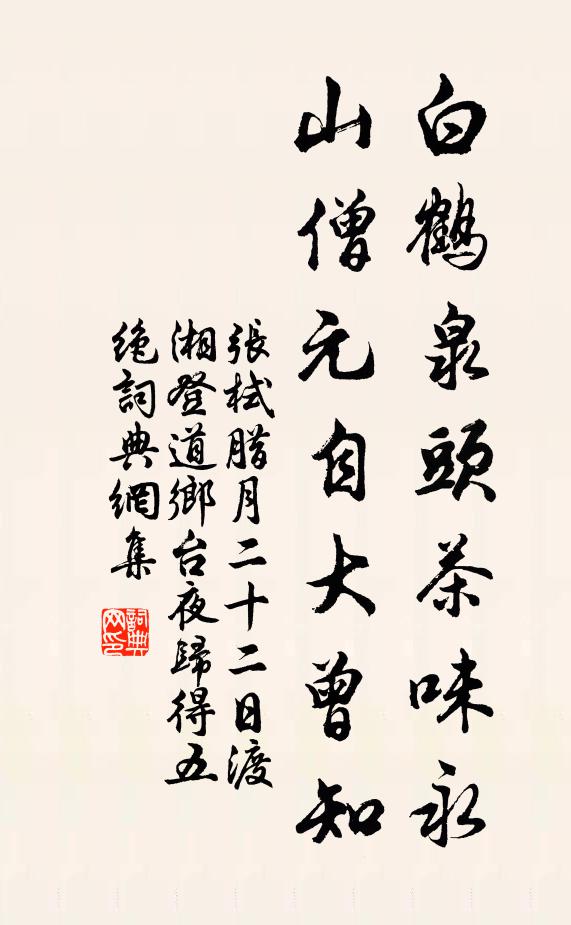 白鶴泉頭茶味永
山僧元自大曾知
張栻腊月二十二日渡
湘登道鄉台夜歸得五
絶詞典網集
詞典
网印